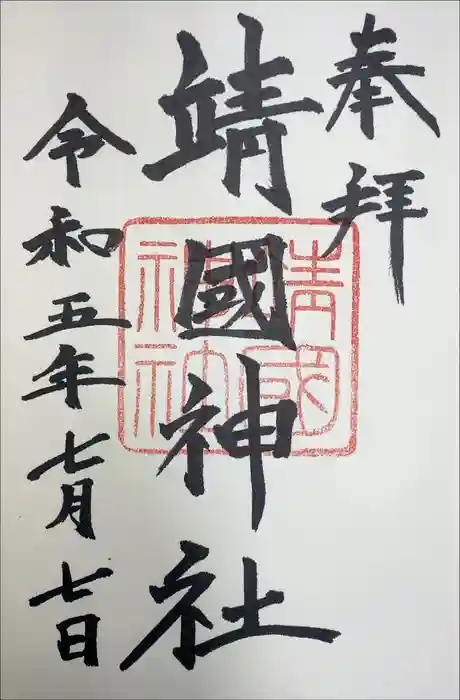 奉拝
靖國神社
靖國神社
令和五年七月七日